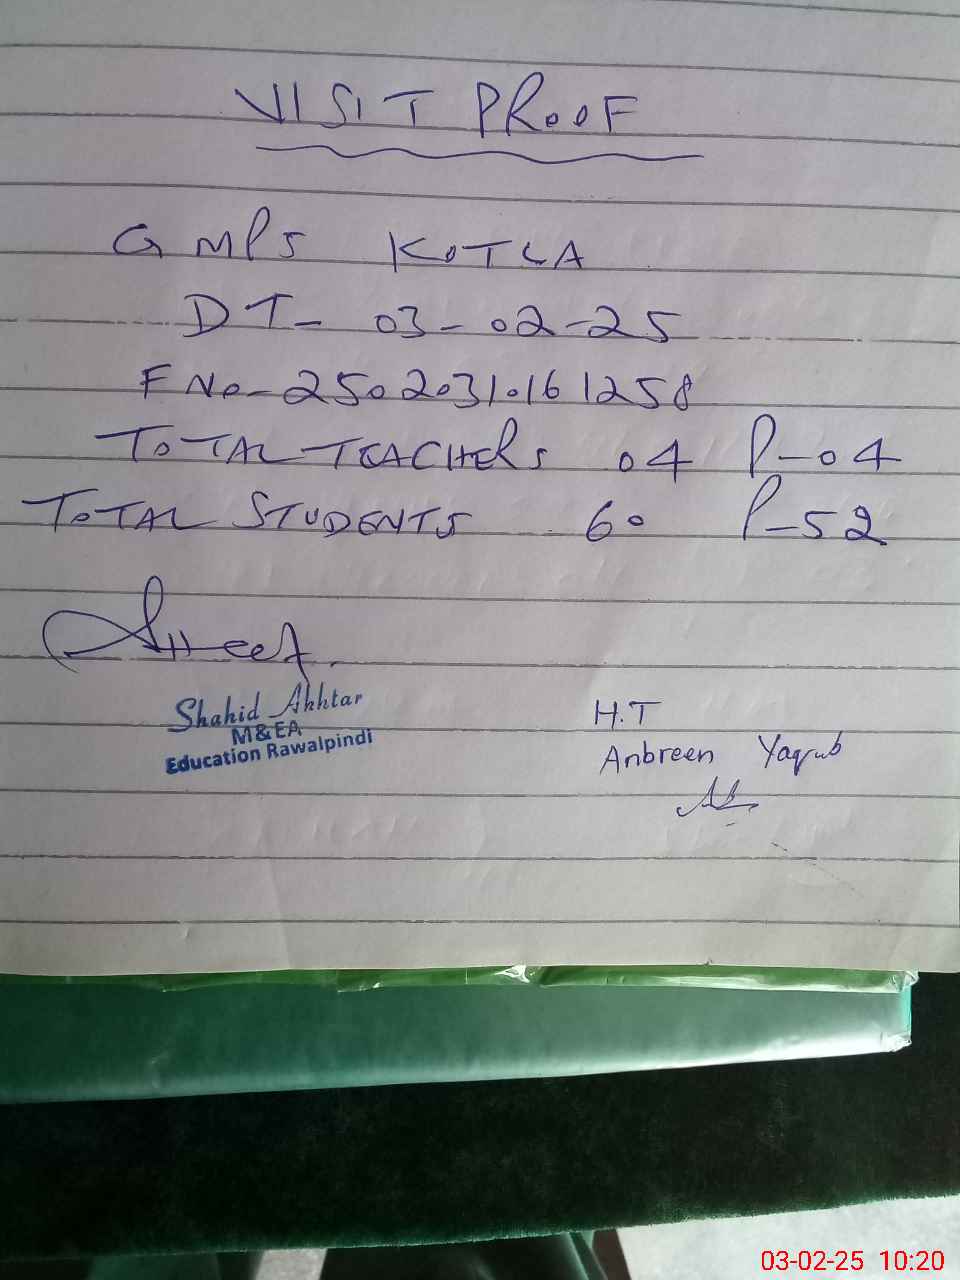 VISIT PROOF
GMPS KOTLA
DT- 03-02-25
F No-25020310161258
TOTAL TEACHERS 04 P-04
TOTAL STUDENTS 60 P-52
Shahid Akhtar
M&EA
Education Rawalpindi
H.T
Anbreen Yaqub
03-02-25 10:20